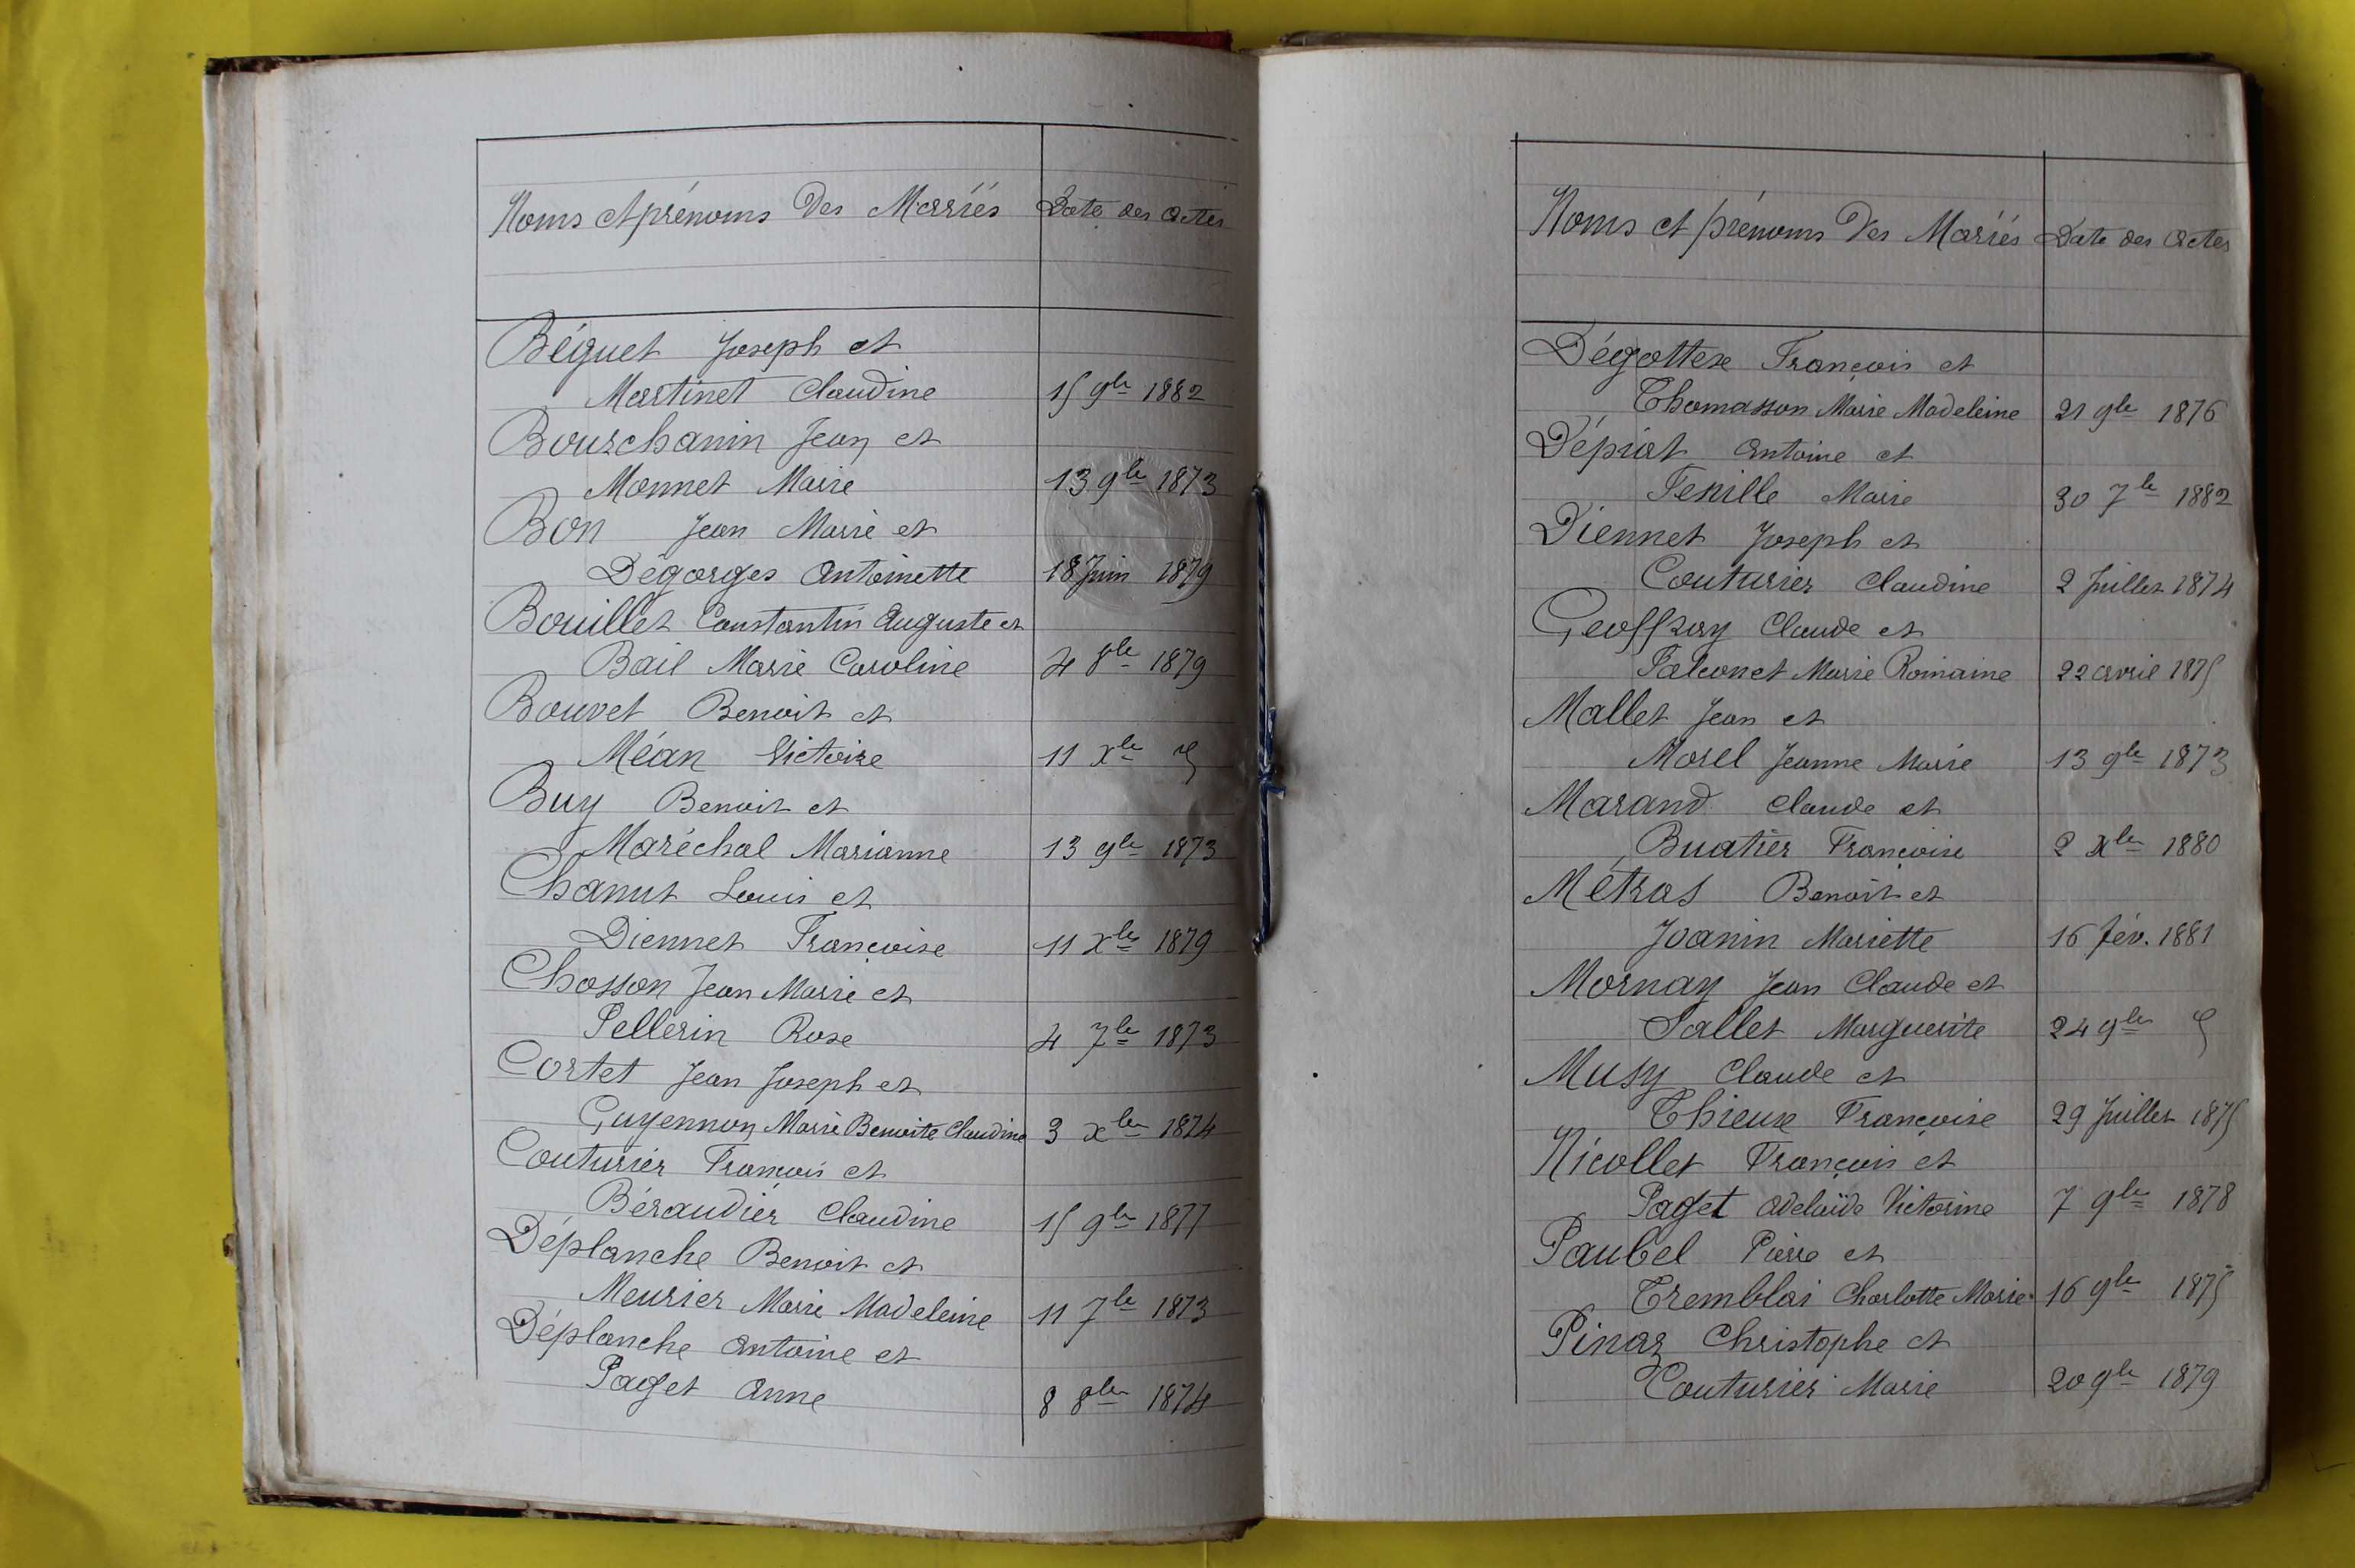 Noms et prénoms des Mariés Date des actes
Béguet Joseph et
Martinet Claudine 15 9bre 1882
Bourchanin Jean et
Monnet Marie 13 9bre 1873
Bon Jean Marie et
Dégorges Antoinette 18 Juin 1879
Bouillet Constantin Auguste et
Bail Marie Caroline 4 8bre 1879
Bouvet Benoit et
Méan Victoire 11 Xbre
Buy Benoit et
Maréchal Marianne 13 9bre 1873
Chanut Louis et
Diennet Françoise 11 Xbre 1879
Chosson Jean Marie et
Pellerin Rose 4 7bre 1873
Cortet Jean Joseph et
Guyennon Marie Benoite Claudine 3 Xbre 1874
Couturier François et
Béraudier Claudine 15 9bre 1877
Déplanche Benoit et
Meurier Marie Madeleine 11 7bre 1873
Déplanche Antoine et
Paget Anne 8 8bre 1874
Noms et prénoms des Mariés Date des actes
Dégottex François et
Thomasson Marie Madeleine 21 9bre 1876
Dépiat Antoine et
Fenille Marie 30 7bre 1882
Diennet Joseph et
Couturier Claudine 2 Juillet 1874
Geoffray Claude et
Falconet Marie Romaine 22 avril 1875
Mallet Jean et
Morel Jeanne Marie 13 9bre 1873
Marand Claude et
Buatier Françoise 2 Xbre 1880
Métras Benoit et
Joanin Mariette 16 fév. 1881
Mornay Jean Claude et
Sallet Marguerite 24 9bre
Musy Claude et
Thieux Françoise 29 Juillet 1875
Nicollet François et
Paget Adelaïde Victorine 7 9bre 1878
Paubel Pierre et
Tremblai Charlotte Marie 16 9bre 1875
Pinaz Christophe et
Couturier Marie 20 9bre 1879